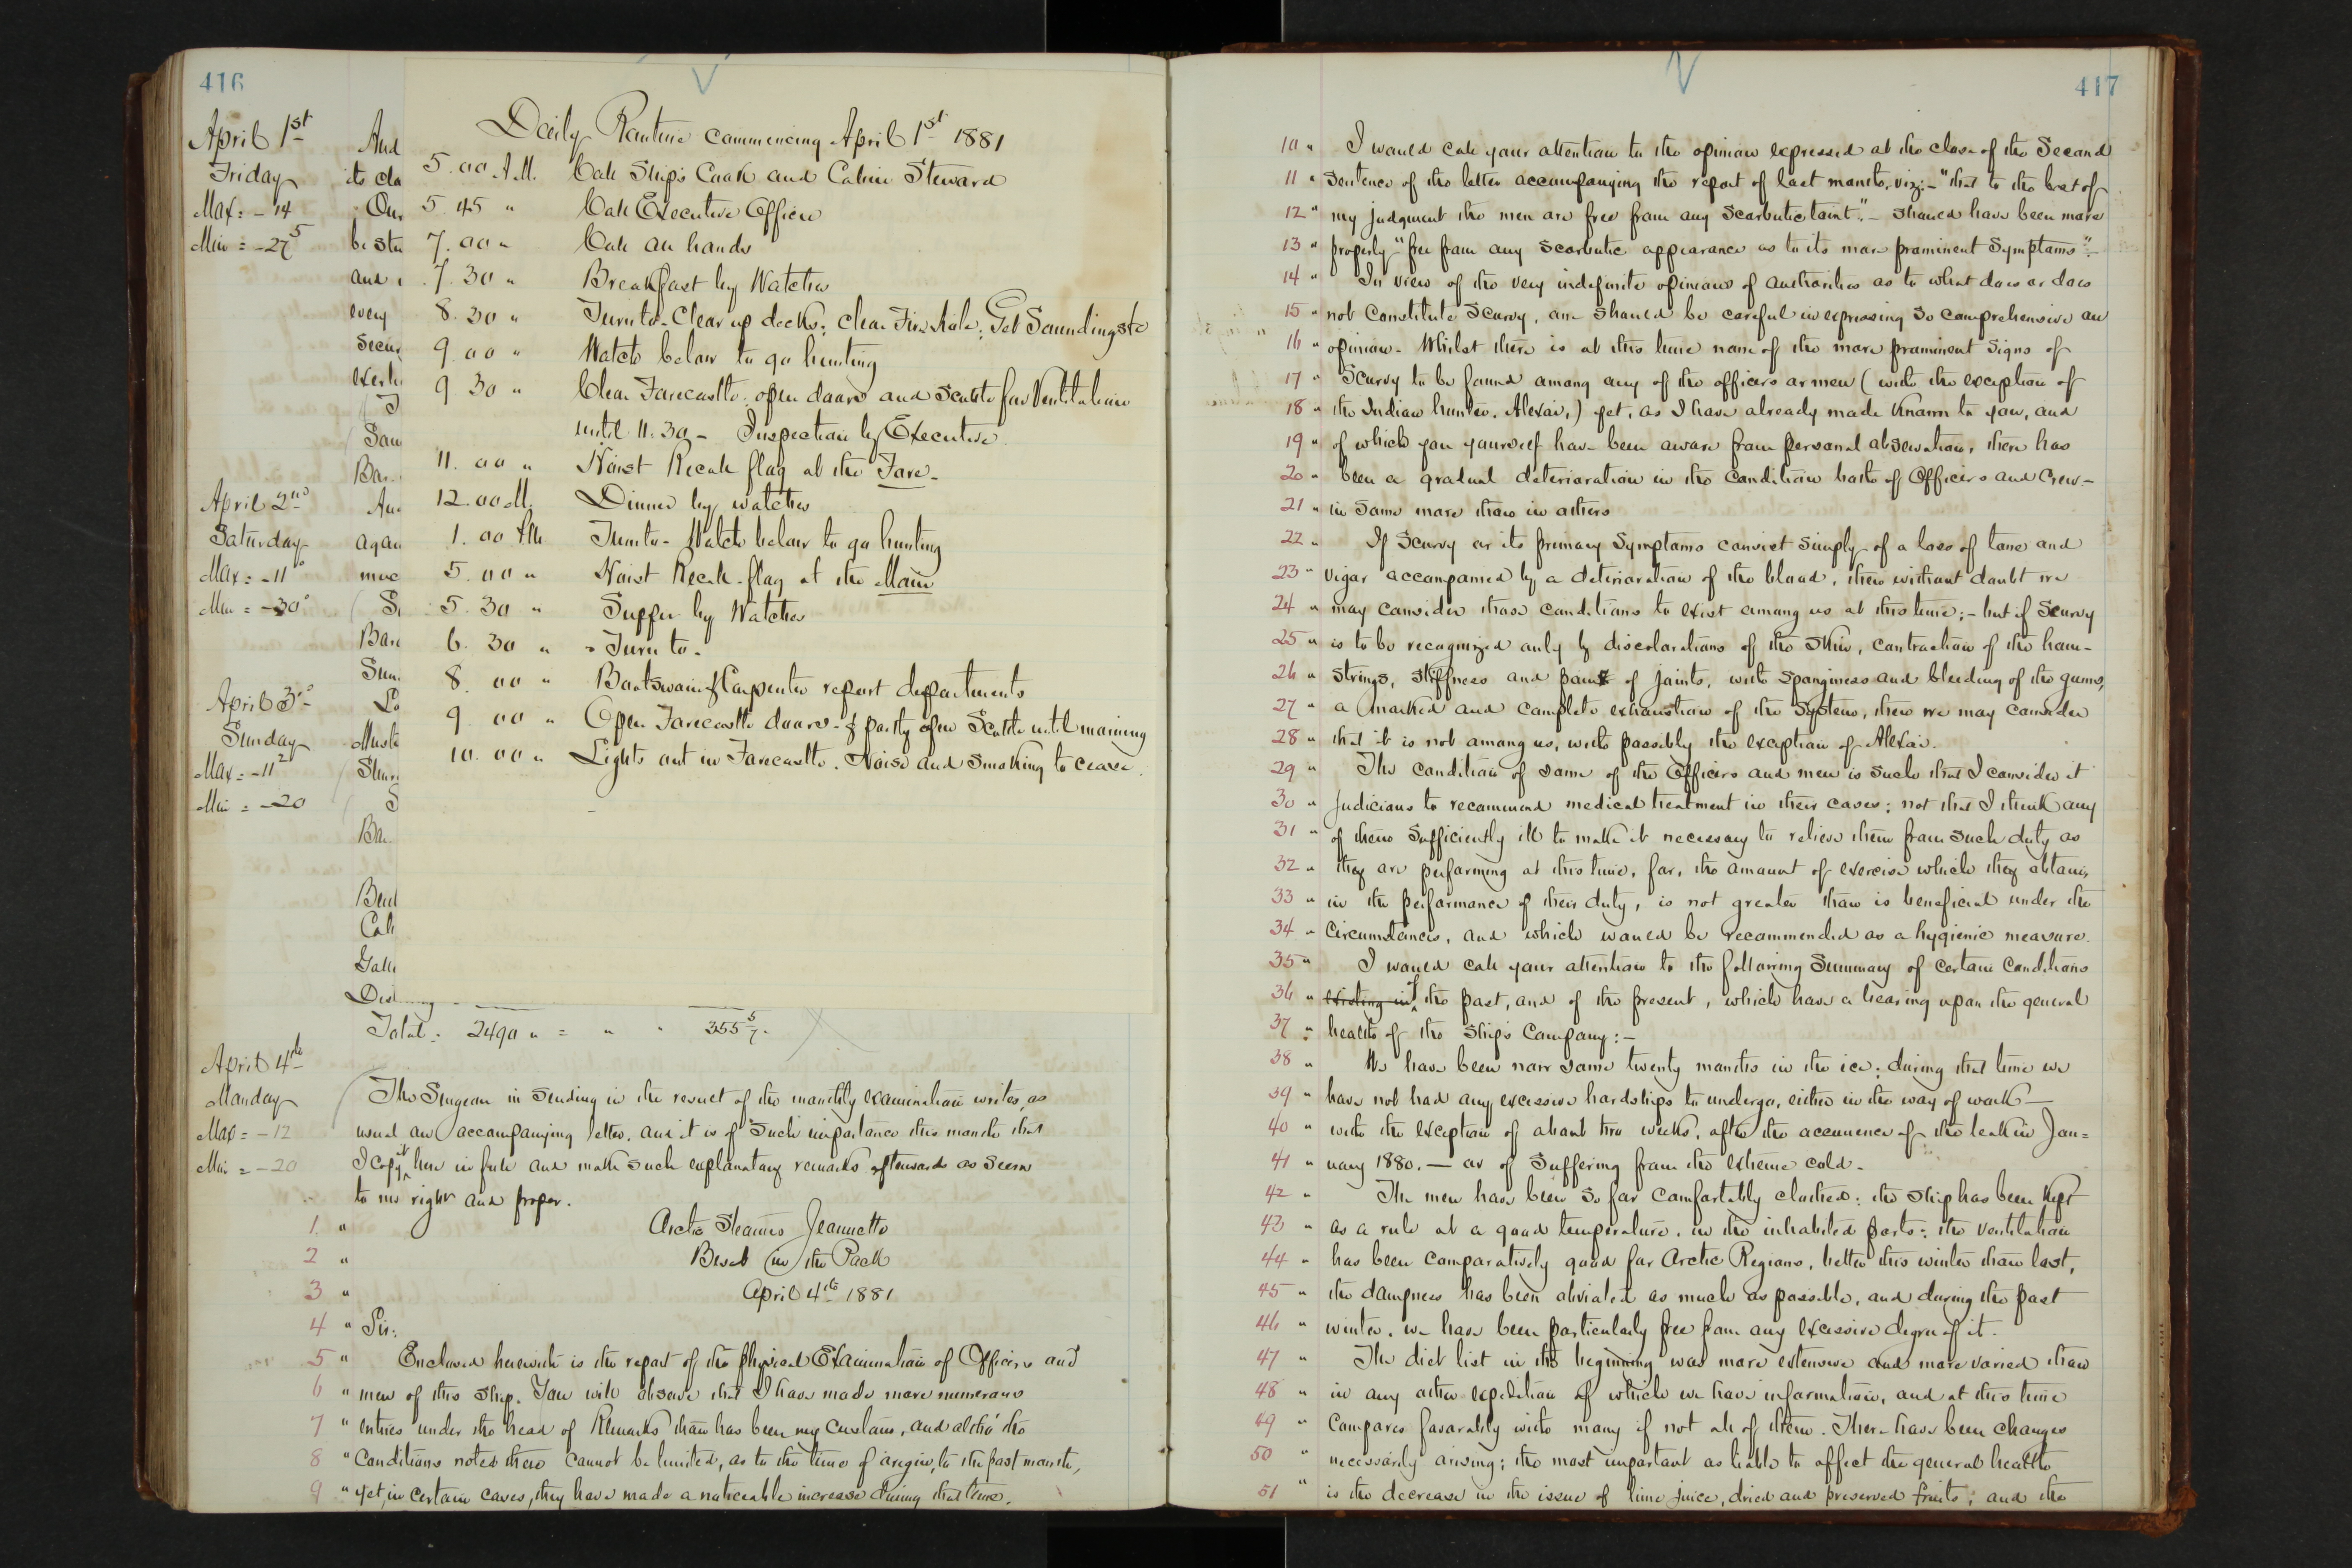 416
April 1st
Friday
Max = -14
Min = -27⁵
And
its cla
Our
be stu
and
every
Secur
exerti
Sau
Bar.
April 2nd
Saturday
Max = -11°
Min = -30°
agai
muc
Baro
Sun.
April 3d
Sunday
Max = -11²
Min = -20
Muste
Bar.
Cab
Total: 2490 " = " " 355 5/7.
Daily Routine commencing April 1st 1881
5.00 A.M. Call Ship's Cook and Cabin Steward
5.45 " Call Executive Officer
7.00 " Call all hands
7.30 " Breakfast by Watches
8.30 " Turn to. Clear up decks; clear Fire hole; Get Soundings &c
9.00 " Watch below to go hunting
9.30 " Clear Forecastle. open doors and Scuttle for Ventilation
until 11.30 - Inspection by Executive.
11.00 " Hoist Recall flag at the Fore-
12.00 M. Dinner by watches
1.00 P.M. Turn to - Watch below to go hunting
5.00 " Hoist Recall flag at the Main
5.30 " Supper by Watches
6.30 " Turn to.
8.00 " Boatswain & Carpenter report departments
9.00 " Open Forecastle doors - & partly open Scuttle until morning
10.00 " Lights out in Forecastle. Noise and Smoking to cease.
April 4th
Monday
Max = -12
Min = -20
The Surgeon in Sending in the result of the monthly examination writes, as
usual an accompanying letter. and it is of Such importance this month that
I copy it here in full and make such explanatory remarks afterwards as Seem
to me right and proper.
1. " Arctic Steamer Jeannette
2 " Beset in the Pack
3 " April 4th 1881
4 " Sir:
5 " Enclosed herewith is the report of the physical Examination of Officers and
6 " men of this Ship. You will observe that I have made more numerous
7 " entries under the head of Remarks than has been my custom, and altho' the
8 " Conditions noted there cannot be limited, as to the time of origin, to the past month,
9 " yet, in certain cases, they have made a noticeable increase during that time.
417
10 " I would call your attention to the opinion expressed at the close of the Second
11 " Sentence of the letter accompanying the report of last month, viz:- "that to the best of
12 " my judgment the men are free from any Scorbutic taint." - should have been more
13 " properly "free from any Scorbutic appearance as to its more prominent Symptoms".-
14 " In view of the very indefinite opinions of authorities as to what does or does
15 " not Constitute Scurvy, one Should be careful in expressing So comprehensive an
16 " opinion. Whilst there is at this time none of the more prominent Signs of
17 " Scurvy to be found among any of the officers or men (with the exception of
18 " the Indian hunter, Alexai,) yet, as I have already made Known to you, and
19 " of which you yourself have been aware from personal observation, there has
20 " been a gradual deterioration in the Condition both of Officers and Crew -
21 " in Some more than in others
22 " If Scurvy or its primary Symptoms consist Simply of a loss of tone and
23 " vigor accompanied by a deterioration of the blood, then without doubt we
24 " may consider those conditions to exist among us at this time; - but if Scurvy
25 " is to be recognized only by discolorations of the Skin, contraction of the ham-
26 " strings, Stiffness and pain of joints, with Sponginess and bleeding of the gums,
27 " a marked and complete exhaustion of the System, then we may consider
28 " that it is not among us, with possibly the exception of Alexai.
29 " The condition of some of the Officers and men is Such that I consider it
30 " judicious to recommend medical treatment in their cases; not that I think any
31 " of them Sufficiently ill to make it necessary to relieve them from Such duty as
32 " they are performing at this time, for, the amount of exercise which they obtain,
33 " in the performance of their duty, is not greater than is beneficial under the
34 " Circumstances, and which would be recommended as a hygienic measure.
35 " I would call your attention to the following Summary of certain Conditions
36 " existing in of the past, and of the present, which have a bearing upon the general
37 " health of the Ship's Company:-
38 " We have been now some twenty months in the ice; during that time we
39 " have not had any excessive hardships to undergo, either in the way of work -
40 " with the exception of about two weeks, after the occurrence of the leak in Jan=
41 " uary 1880. - or of Suffering from the extreme cold.
42 " The men have been So far Comfortably clothed: the Ship has been Kept
43 " as a rule at a good temperature, in the inhabited parts; the ventilation
44 " has been comparatively good for Arctic Regions, better this winter than last,
45 " the dampness has been obviated as much as possible, and during the past
46 " winter, we have been particularly free from any excessive degree of it.
47 " The diet list in the beginning was more extensive and more varied than
48 " in any other expedition of which we have information, and at this time
49 " Compares favorably with many if not all of them. There have been changes
50 " necessarily arising; the most important as liable to affect the general health
51 " is the decrease in the issue of lime juice, dried and preserved fruits; and the